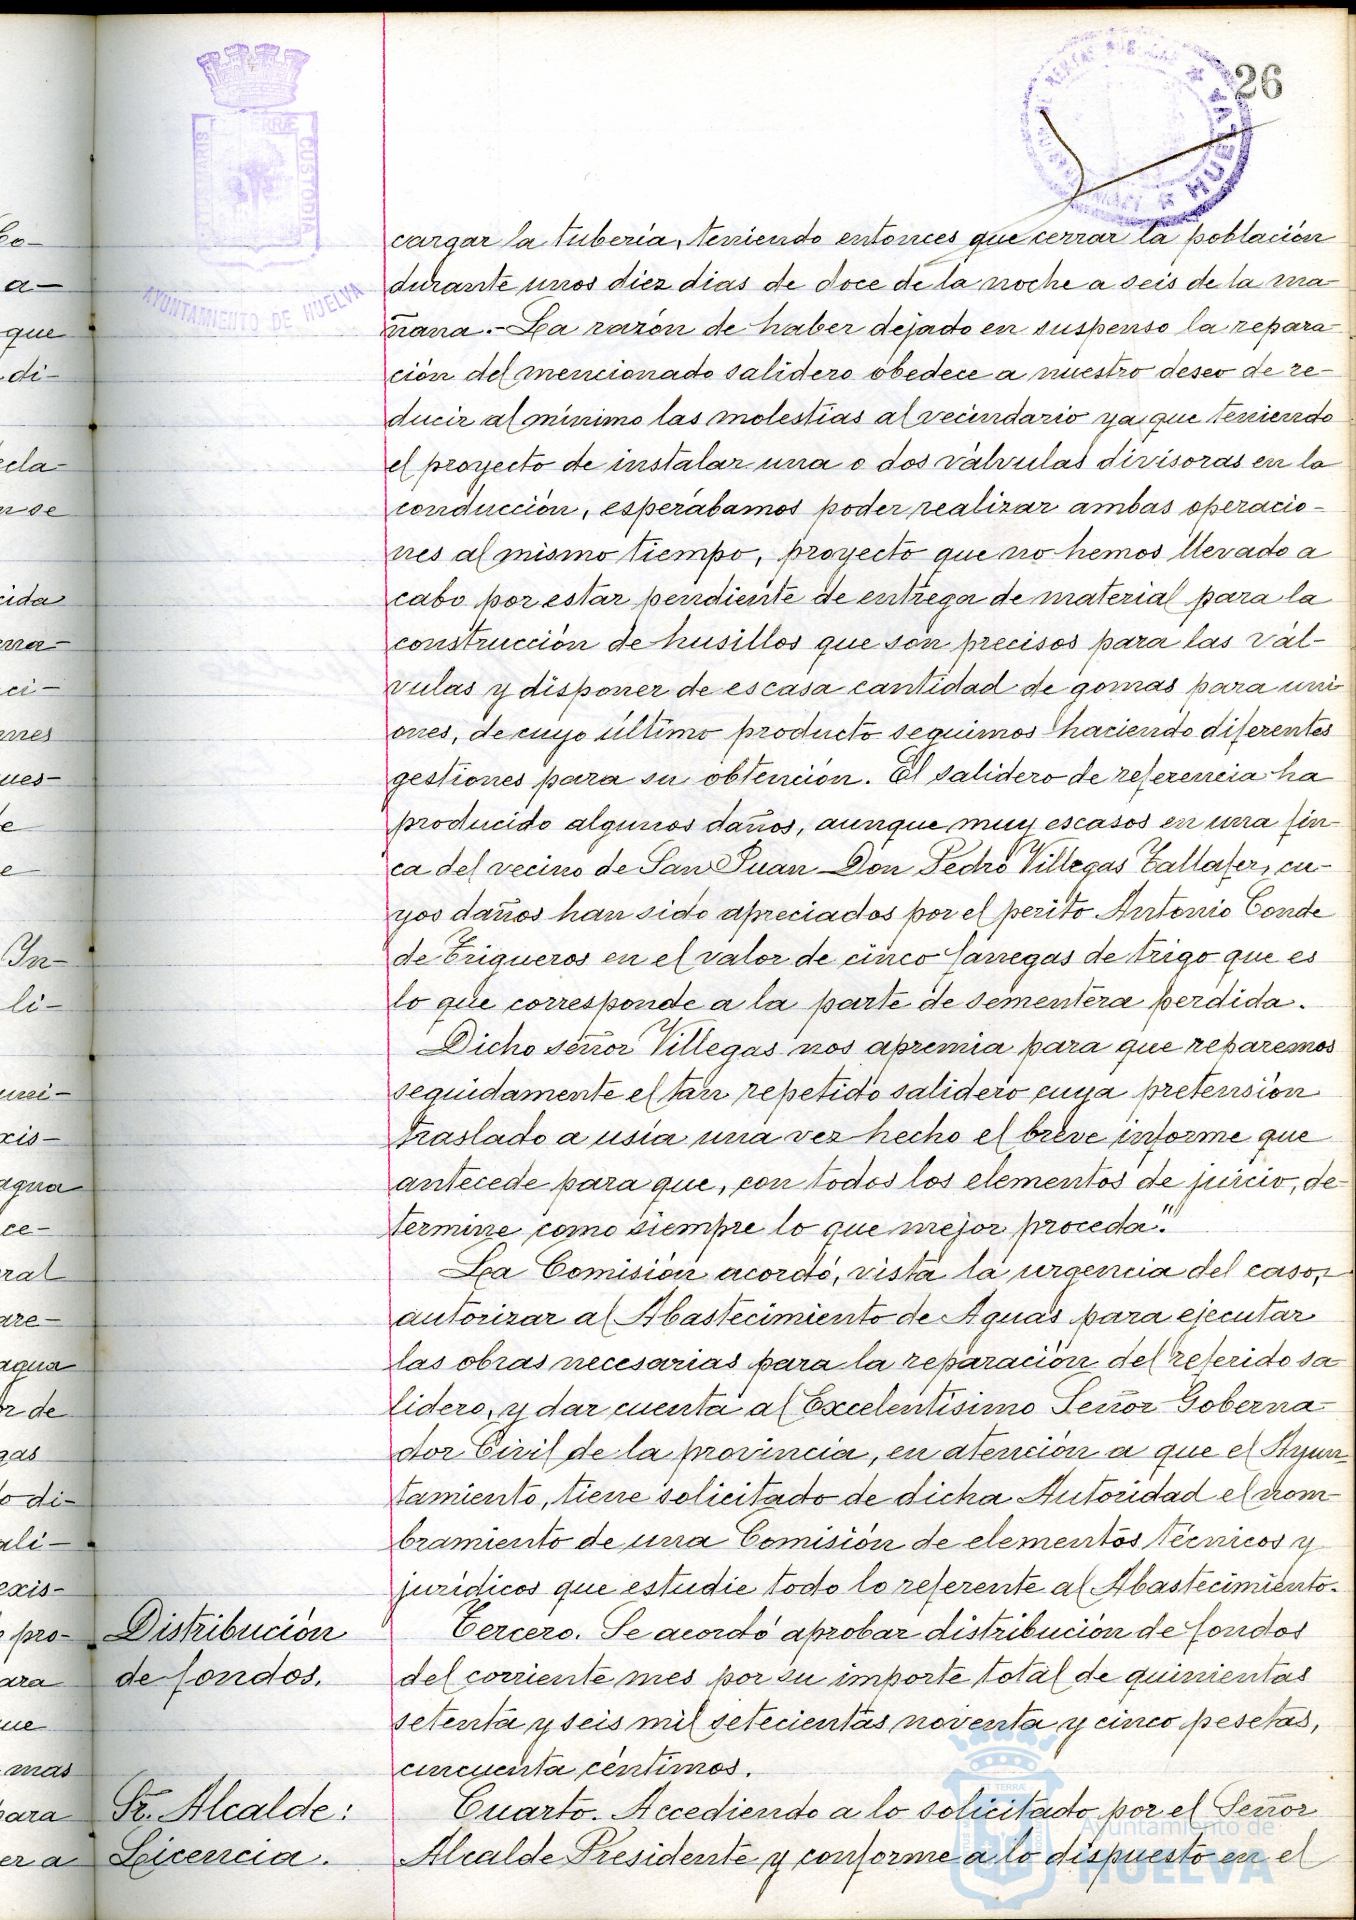 26
TERRÆ
CUSTODIA
AYUNTAMIENTO DE HUELVA
HUELVA
cargar la tubería, teniendo entonces que cerrar la población
durante unos diez dias de doce de la noche a seis de la ma-
ñana.- La razón de haber dejado en suspenso la repara-
ción del mencionado salidero obedece a nuestro deseo de re-
ducir al mínimo las molestias al vecindario ya que teniendo
el proyecto de instalar una o dos válvulas divisoras en la
conducción, esperábamos poder realizar ambas operacio-
nes al mismo tiempo, proyecto que no hemos llevado a
cabo por estar pendiente de entrega de material para la
construcción de husillos que son precisos para las vál-
vulas y disponer de escasa cantidad de gomas para uni-
ones, de cuyo último producto seguimos haciendo diferentes
gestiones para su obtención. El salidero de referencia ha
producido algunos daños, aunque muy escasos en una fin-
ca del vecino de San Juan Don Pedro Villegas Tallafer, cu-
yos daños han sido apreciados por el perito Antonio Conde
de Trigueros en el valor de cinco fanegas de trigo que es
lo que corresponde a la parte de sementera perdida.
Dicho señor Villegas nos apremia para que reparemos
seguidamente el tan repetido salidero cuya pretensión
traslado a usía una vez hecho el breve informe que
antecede para que, con todos los elementos de juicio, de-
termine como siempre lo que mejor proceda."
La Comisión acordó, vista la urgencia del caso,
autorizar al Abastecimiento de Aguas para ejecutar
las obras necesarias para la reparación del referido sa-
lidero, y dar cuenta al Excelentísimo Señor Goberna-
dor Civil de la provincia, en atención a que el Ayun-
tamiento, tiene solicitado de dicha Autoridad el nom-
bramiento de una Comisión de elementos técnicos y
jurídicos que estudie todo lo referente al Abastecimiento.
Distribución
de fondos.
Tercero. Se acordó aprobar distribución de fondos
del corriente mes por su importe total de quinientas
setenta y seis mil setecientas noventa y cinco pesetas,
cincuenta céntimos.
Sr. Alcalde:
Licencia.
Cuarto. Accediendo a lo solicitado por el Señor
Alcalde Presidente y conforme a lo dispuesto en el
Ayuntamiento de
HUELVA